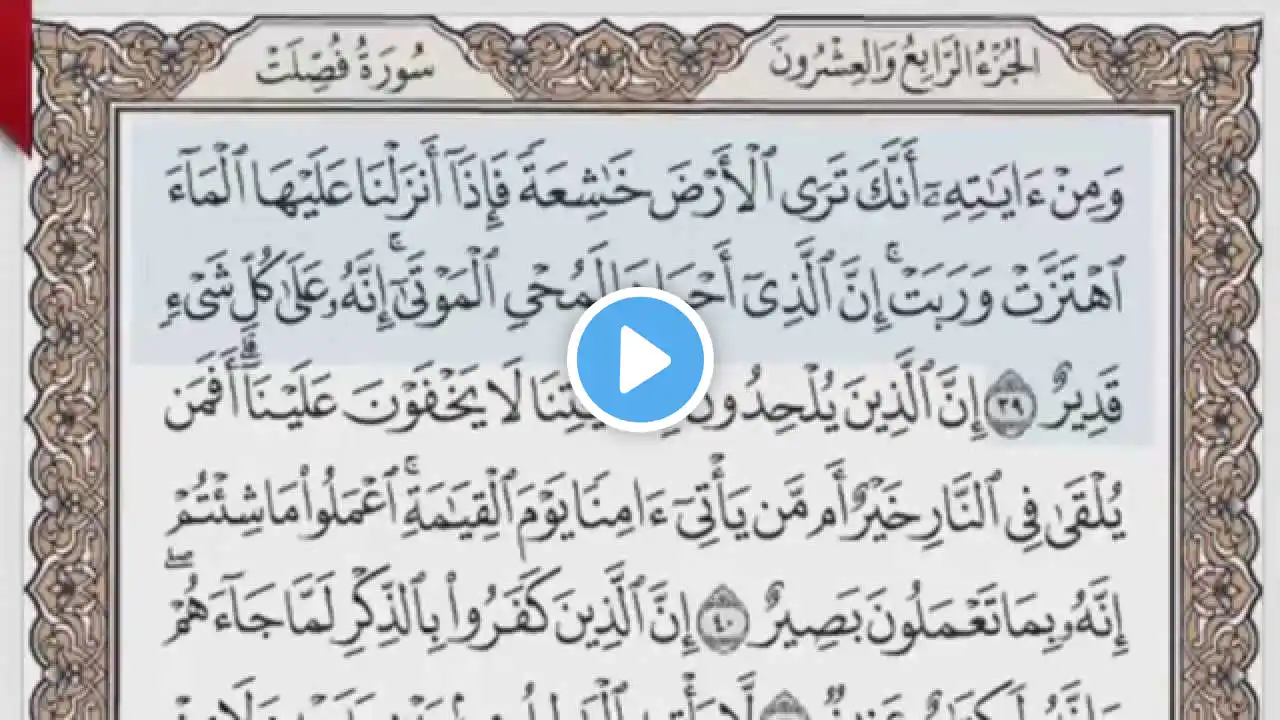 الجُزْءُ الرَّابِعُ وَالْعِشْرُونَ
سُورَةُ فُصِّلَتْ
وَمِنْ ءَايَٰتِهِۦٓ أَنَّكَ تَرَى ٱلْأَرْضَ خَٰشِعَةً فَإِذَآ أَنزَلْنَا عَلَيْهَا ٱلْمَآءَ
ٱهْتَزَّتْ وَرَبَتْ ۚ إِنَّ ٱلَّذِىٓ لَمُحْىِ ٱلْمَوْتَىٰٓ ۚ إِنَّهُۥ عَلَىٰ كُلِّ شَىْءٍ
قَدِيرٌ ٣٩ إِنَّ ٱلَّذِينَ يُلْحِدُونَ لَا يَخْفَوْنَ عَلَيْنَآ ۗ أَفَمَن
يُلْقَىٰ فِى ٱلنَّارِ خَيْرٌ أَم مَّن يَأْتِىٓ ءَامِنًا يَوْمَ ٱلْقِيَٰمَةِ ۚ ٱعْمَلُوا۟ مَا شِئْتُمْ ۖ
إِنَّهُۥ بِمَا تَعْمَلُونَ بَصِيرٌ ٤٠ إِنَّ ٱلَّذِينَ كَفَرُوا۟ بِٱلذِّكْرِ لَمَّا جَآءَهُمْ